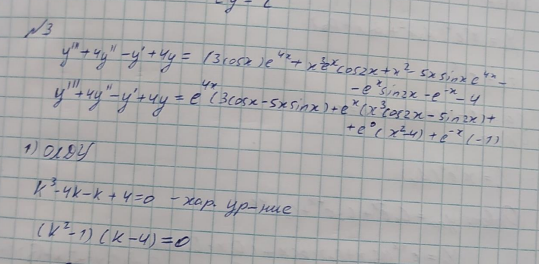 №3
y'''+4y''-y'+4y = (3cosx)e^4x + x^3e^x cos2x + x^2 - 5x sinx e^4x -
- e^x sin2x - e^-x - 4
y'''+4y''-y'+4y = e^4x(3cosx - 5x sinx) + e^x(x^3cos2x - sin2x) +
+ e^0(x^2-4) + e^-x(-1)
1) ОЛДУ
k^3-4k-k+4=0 - хар. ур-ние
(k^2-1)(k-4)=0